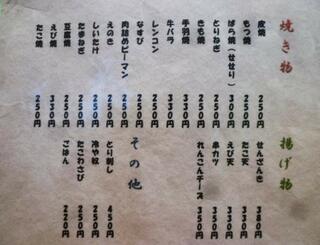 焼き物
皮焼 250円
もつ焼 250円
ばら焼(せせり) 300円
とりねぎ 250円
きも焼 250円
手羽焼 330円
牛バラ 330円
レンコン 250円
なすび 250円
肉詰めピーマン 250円
えのき 250円
しいたけ 250円
たまねぎ 250円
豆腐焼 250円
えび焼 330円
たこ焼 250円
揚げ物
せんざんき 380円
たこ天 330円
えび天 350円
串カツ 350円
れんこんチーズ 350円
その他
とり刺し 450円
冷や奴 250円
たこわさび 250円
ごはん 220円